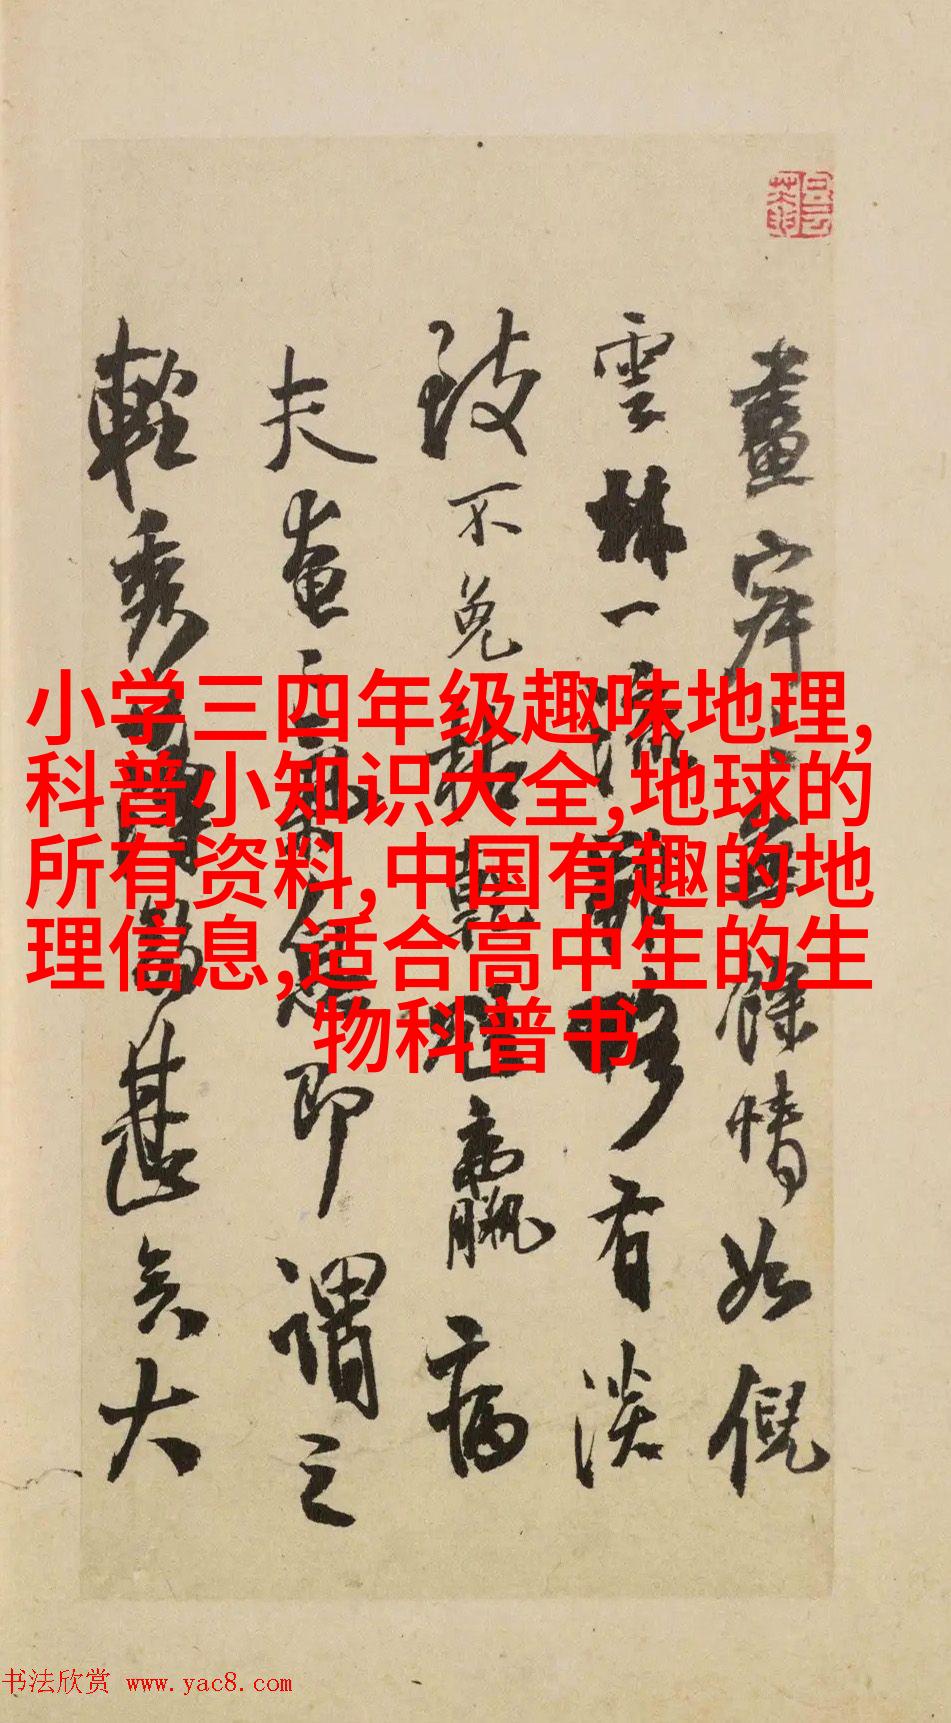 小学三四年级趣味地理,
科普小知识大全,地球的
所有资料,中国有趣的地
理信息,适合高中生的生
物科普书
畫 餘情如倪
雲林一派雖略有淡
致不免枯乾尫羸病
夫奄氣息即謂之
輕秀薄弱甚矣大
书法欣赏 www.yac8.com